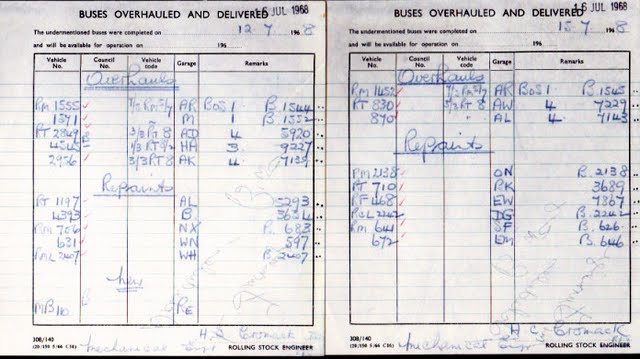 BUSES OVERHAULED AND DELIVERED 16 JUL 1968
The undermentioned buses were completed on 12 7 1968
and will be available for operation on 196
Vehicle No. Council No. Vehicle code Garage Remarks
Overhauls
RM 1555 AR BOS 1 B. 1544
1571 M 1 B 1552
RT 2849 3/3 RT 8 AD 4 5920
HA 3 9227
3/3 RT 8 AK 4
Repaints
RT 1197 AL 5293
4393 B
RM 706 NX B. 683
631 WN 597
RML 2407 WH B. 2407
new
MB 110 RE
H.C. Cromack
308/140
Mechanical Engr ROLLING STOCK ENGINEER
BUSES OVERHAULED AND DELIVERED 16 JUL 1968
The undermentioned buses were completed on 15 7 1968
and will be available for operation on 196
Vehicle No. Council No. Vehicle code Garage Remarks
Overhauls
RM 1452 AR BOS 1 B. 1545
RT 830 3/3 RT 8 AW 4 7229
870 AL 4 7143
Repaints
RM 2138 ON B. 2138
RT 710 RK 3689
RF 468 EW 7867
RCL 2242 DG B. 2242
RM 641 SF B. 626
672 B. 646
H C Cromack
308/140
Mechanical Engr ROLLING STOCK ENGINEER